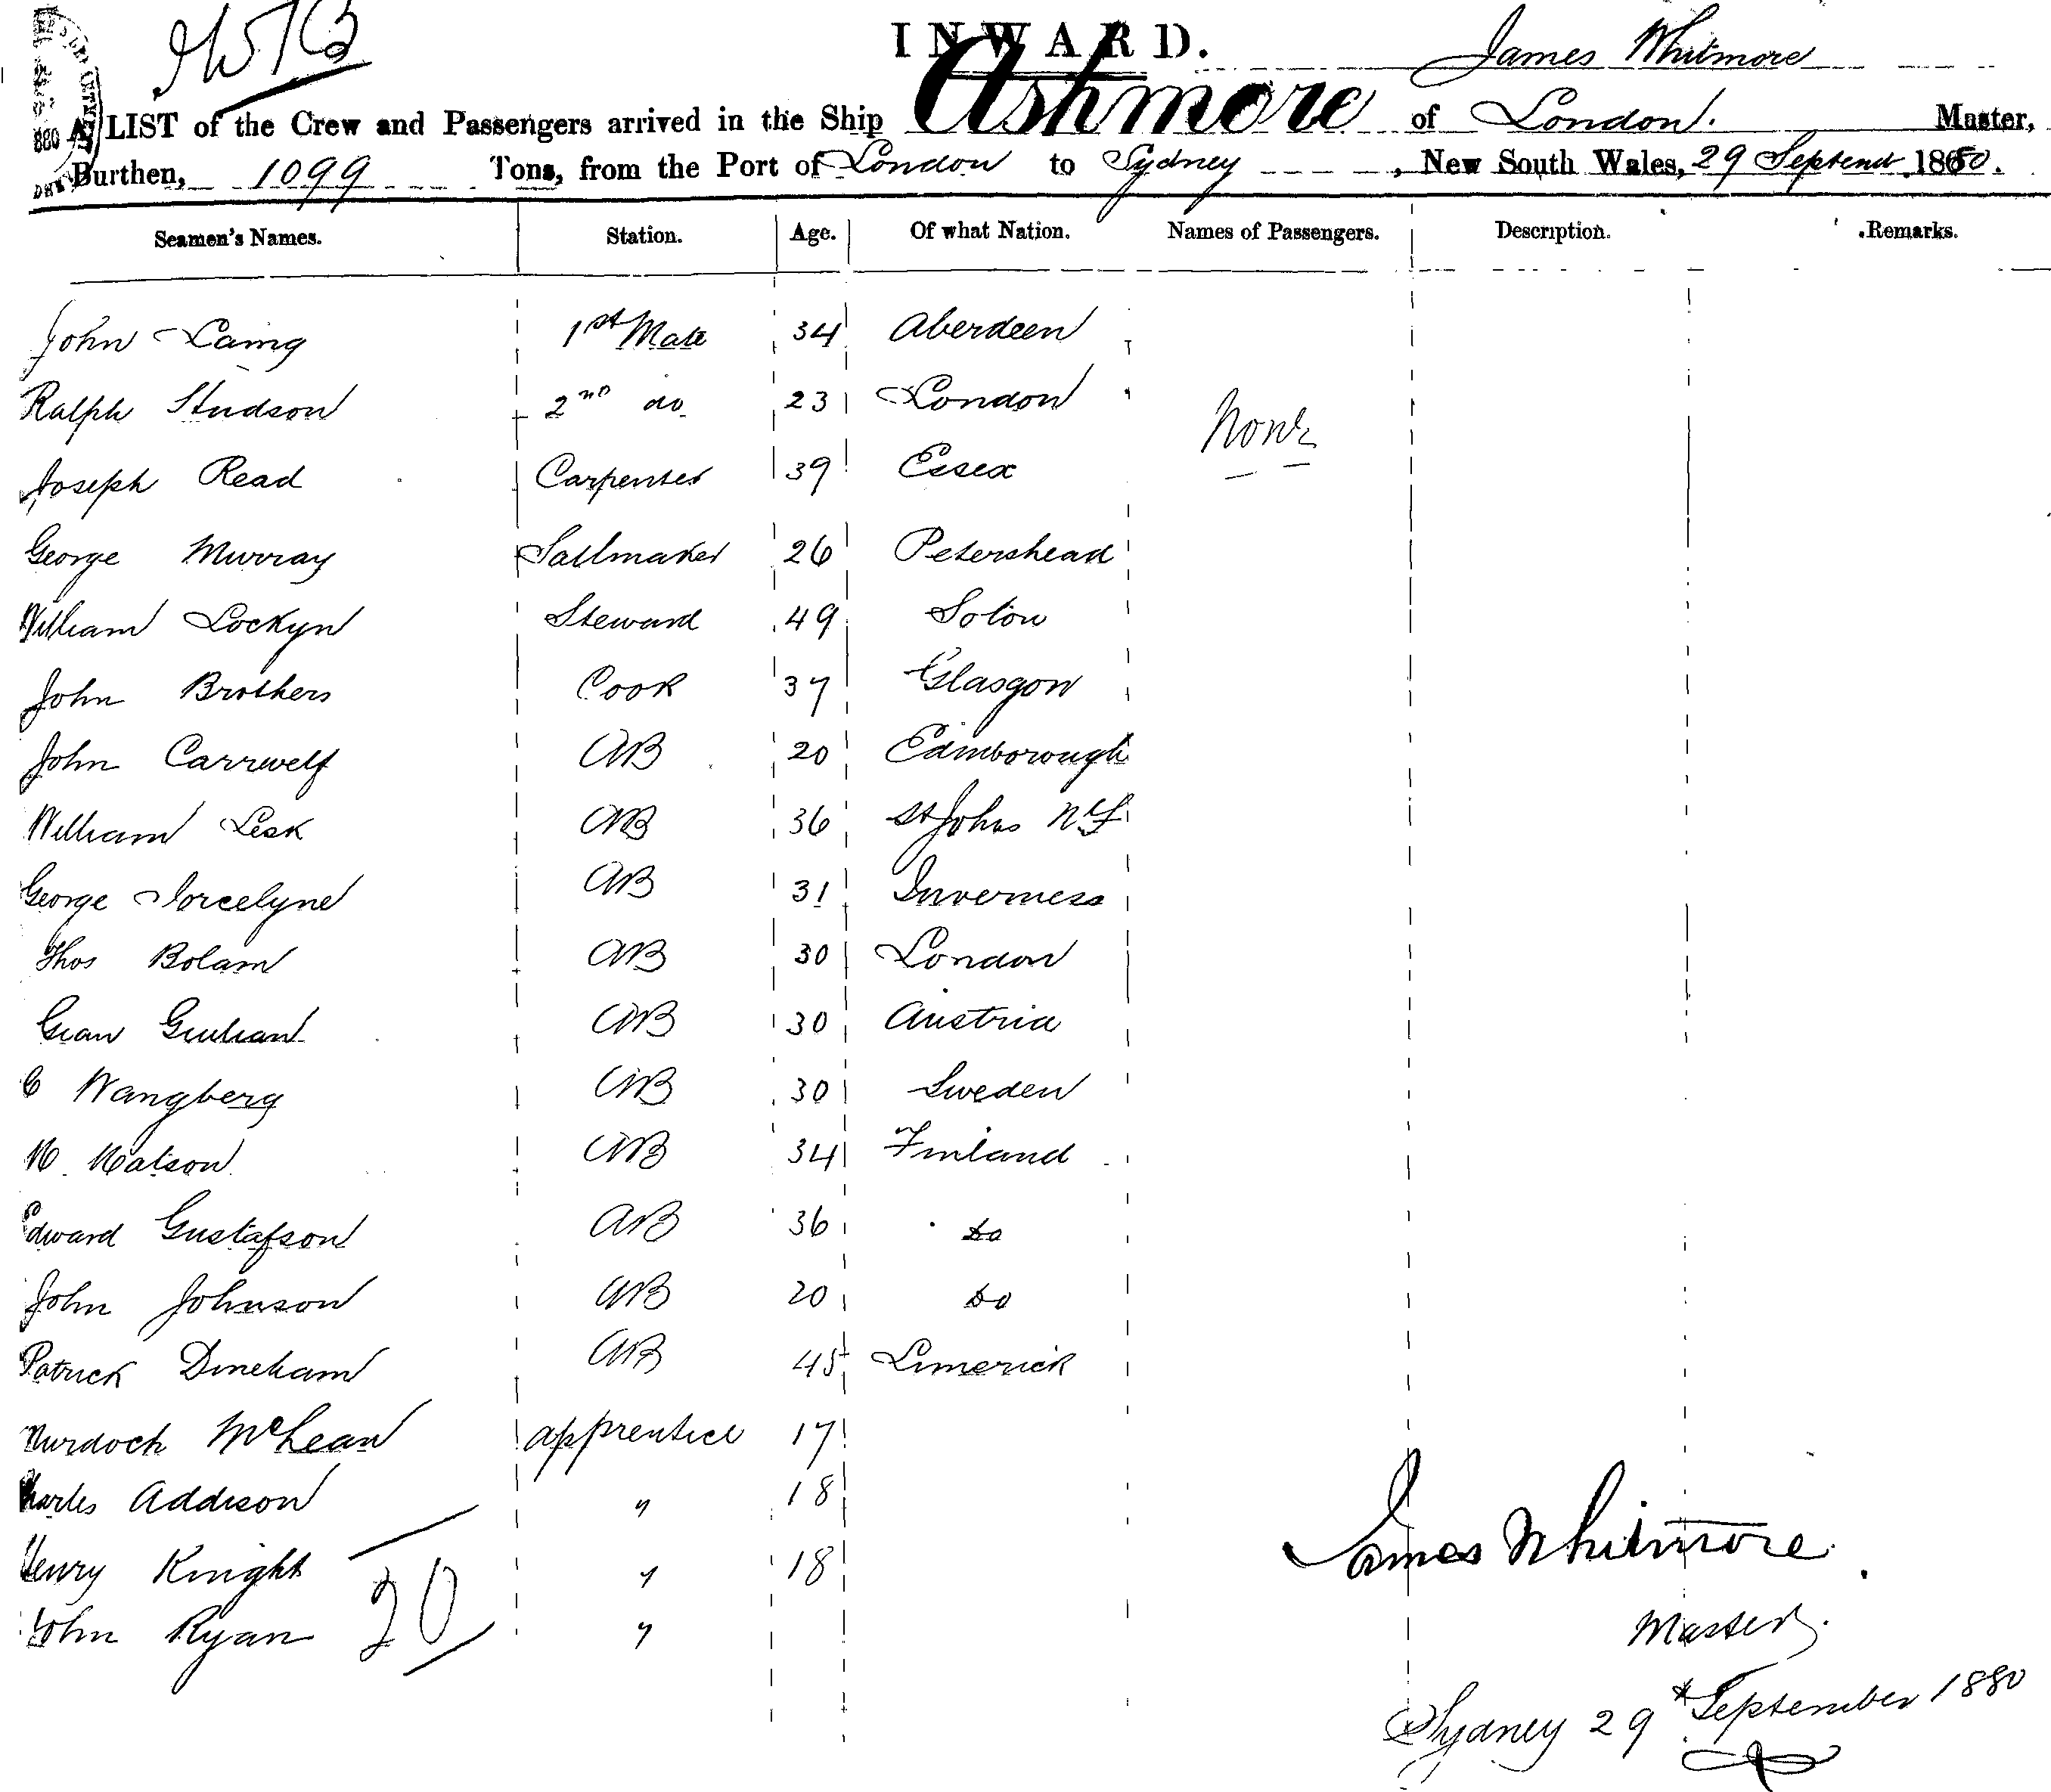 INWARD.
James Whitmore
A LIST of the Crew and Passengers arrived in the Ship Ashmore of London. Master,
Burthen, 1099 Tons, from the Port of London to Sydney, New South Wales, 29 Septembr 1880.
Seamen's Names. Station. Age. Of what Nation. Names of Passengers. Description. Remarks.
John Laing 1st Mate 34 Aberdeen
Ralph Studson 2nd do 23 London
None
Joseph Read Carpenter 39 Essex
George Murray Sailmaker 26 Petershead
William Lockyn Steward 49 Soton
John Brothers Cook 37 Glasgow
John AB 20 Edinborough
William Lesk AB 36 St Johns NF
George Jorcelyne AB 31 Inverness
Thos Bolam AB 30 London
Gian Giulian AB 30 Austria
C Wangberg AB 30 Sweden
M. Matson AB 34 Finland
Edward Gustafson AB 36 do
John Johnson AB 20 do
Patrick Dineham AB 45 Limerick
Murdoch McLean apprentice 17
Charles Addison " 18
Henry Knight " 18
John Ryan "
20
James Whitmore.
Master.
Sydney 29th September 1880